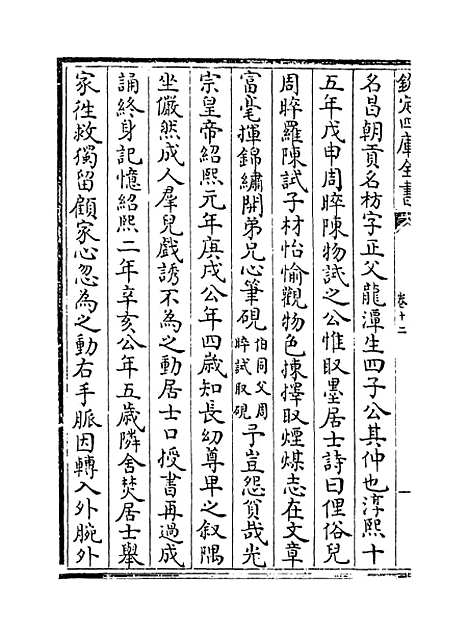 欽定四庫全書
卷十二
名昌朝貢名枋字正父龍潭生四子公其仲也淳熙十
五年戊申周晬陳物試之公惟取墨居士詩曰俚俗兒
周晬羅陳試子材怡愉觀物色揀擇取煙煤志在文章
富毫揮錦繡開弟兄心筆硯伯同父周晬試取硯予豈怨貧哉光
宗皇帝紹熙元年庚戌公年四歲知長幼尊卑之叙隅
坐儼然成人羣兒戲誘不為之動居士口授書再過成
誦終身記憶紹熙二年辛亥公年五歲隣舍焚居士舉
家徃救獨留顧家心忽為之動右手脈因轉入外腕外